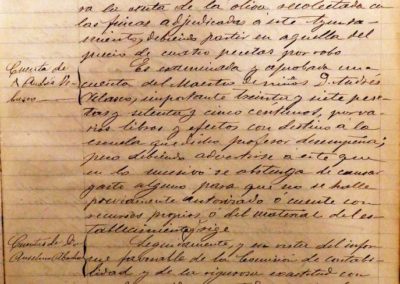 ra la venta de la oliva recolectada en
las fincas adjudicadas a este Ayunta-
miento, debiendo partir en aquella del
precio de cuatro pesetas por robo
Cuenta de
D. Andrés
Es examinada y aprobada una
cuenta del Maestro de niños D. Andrés
Velasco, importante treinta y siete pese-
tas y setenta y cinco centimos, por va-
rios libros y efectos con destino a la
escuela que dicho profesor desempeña;
pero debiendo advertirse a este que
en lo sucesivo se abstenga de causar
gasto alguno, para que no se halle
previamente autorizado o cuente con
recursos propios, o del material del es-
tablecimiento q. rige
Cuenta de D.
Anselmo
Seguidamente, y en vista del infor-
me favorable de la Comisión de contabi-
lidad y de la rigurosa exactitud con